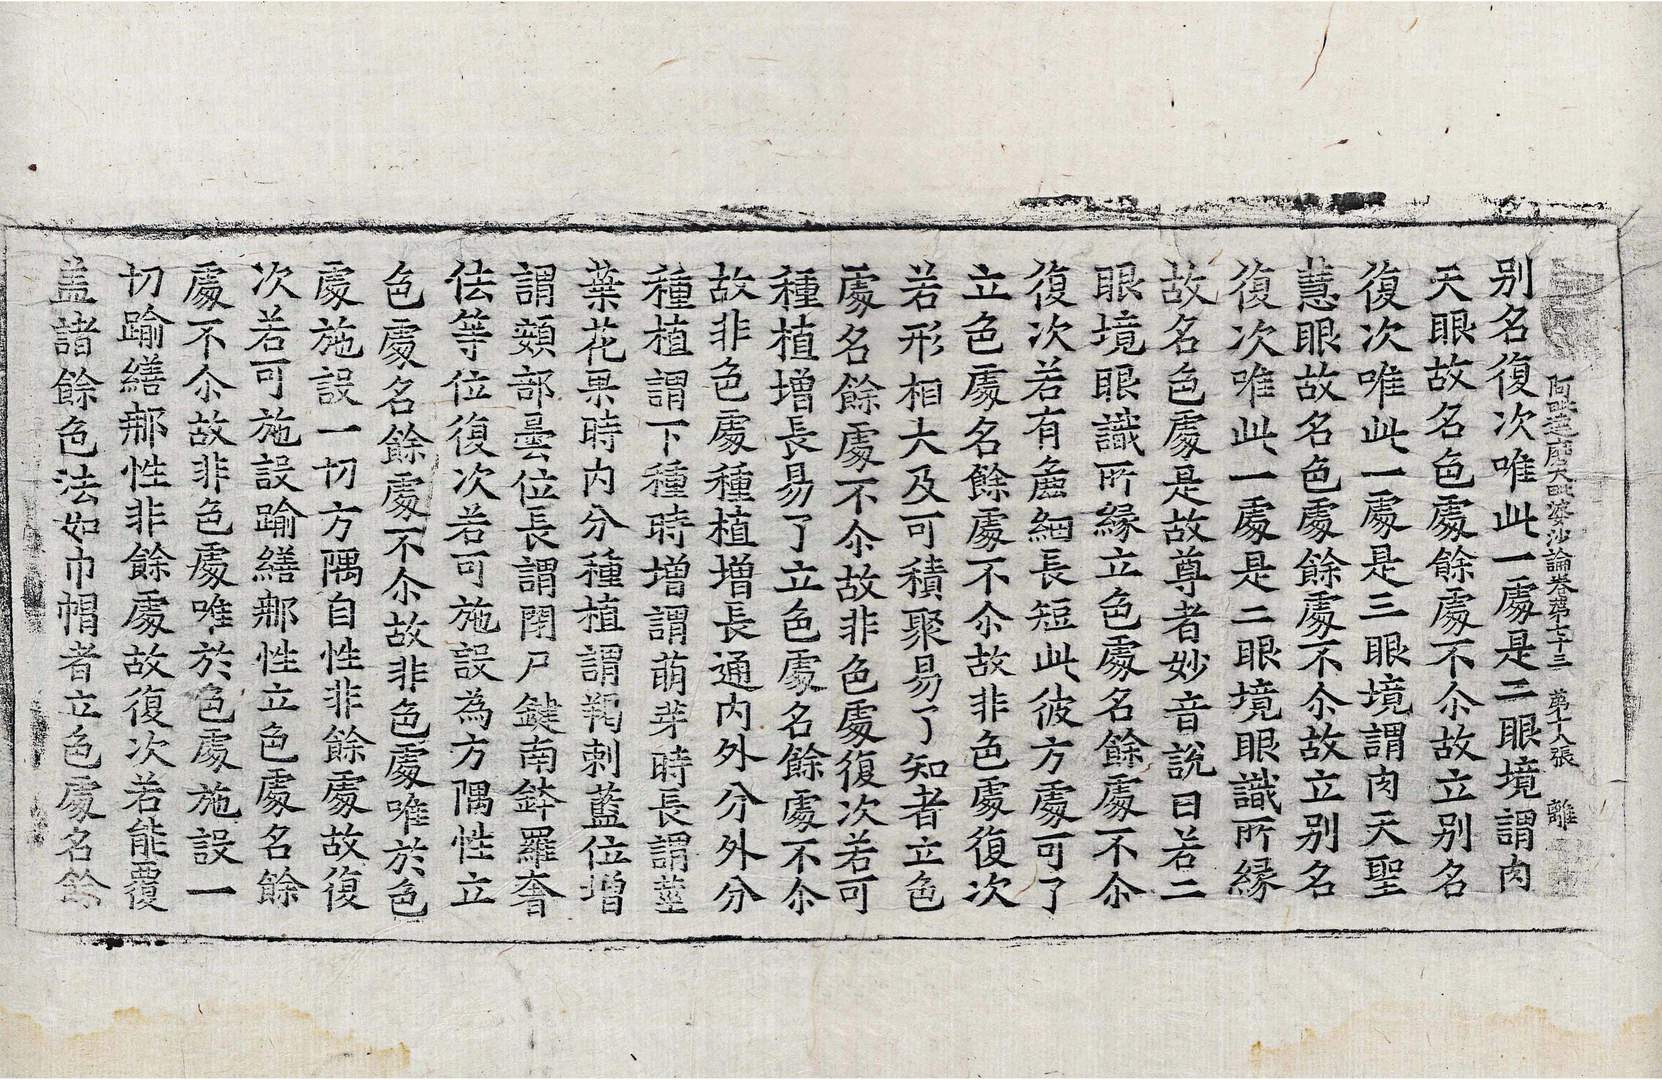 阿毗達磨大毗婆沙論卷第七十三 第十八張 離
别名復次唯此一處是二眼境謂肉
天眼故名色處餘處不尒故立别名
復次唯此一處是三眼境謂肉天聖
慧眼故名色處餘處不尒故立别名
復次唯此一處是二眼境眼識所緣
故名色處是故尊者妙音說曰若二
眼境眼識所緣立色處名餘處不尒
復次若有麁細長短此彼方處可了
立色處名餘處不尒故非色處復次
若形相大及可積聚易了知者立色
處名餘處不尒故非色處復次若可
種植增長易了立色處名餘處不尒
故非色處種植增長通内外分外分
種植謂下種時增謂萌芽時長謂莖
葉花果時内分種植謂羯剌藍位增
謂頞部曇位長謂閉尸鍵南鉢羅奢
佉等位復次若可施設為方隅性立
色處名餘處不尒故非色處唯於色
處施設一切方隅自性非餘處故復
次若可施設踰繕那性立色處名餘
處不尒故非色處唯於色處施設一
切踰繕那性非餘處故復次若能覆
盖諸餘色法如巾帽者立色處名餘